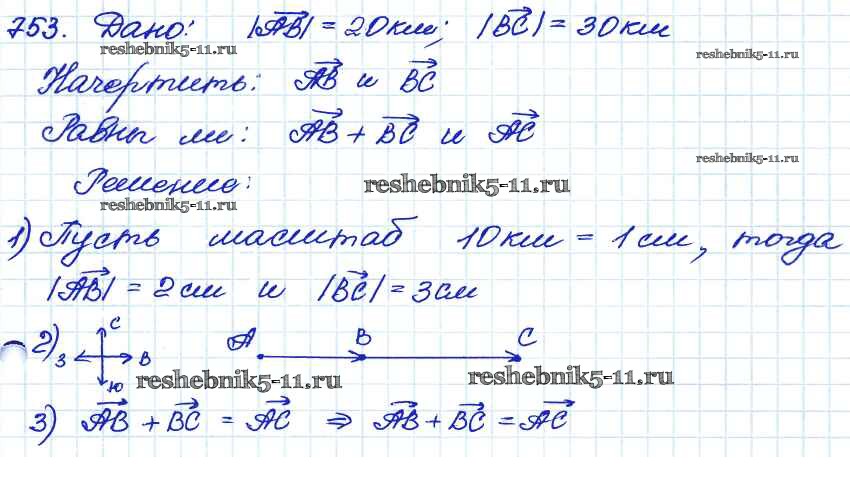 753. Дано: |AB| = 20км; |BC| = 30км
reshebnik5-11.ru reshebnik5-11.ru
Начертить: AB и BC
Равны ли: AB + BC и AC
reshebnik5-11.ru
Решение: reshebnik5-11.ru
reshebnik5-11.ru
1) Пусть масштаб 10км = 1см, тогда
|AB| = 2см и |BC| = 3см
2) С З В Ю A B C
reshebnik5-11.ru reshebnik5-11.ru
3) AB + BC = AC ⇒ AB + BC = AC